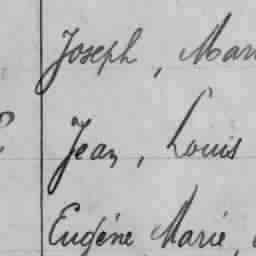 Joseph, Mar
Jean, Louis
Eugène Marie,